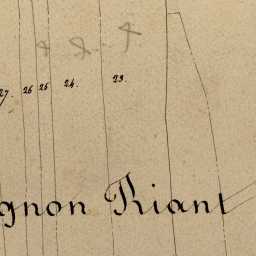 27. 26 25 24. 23.
gnon Riant